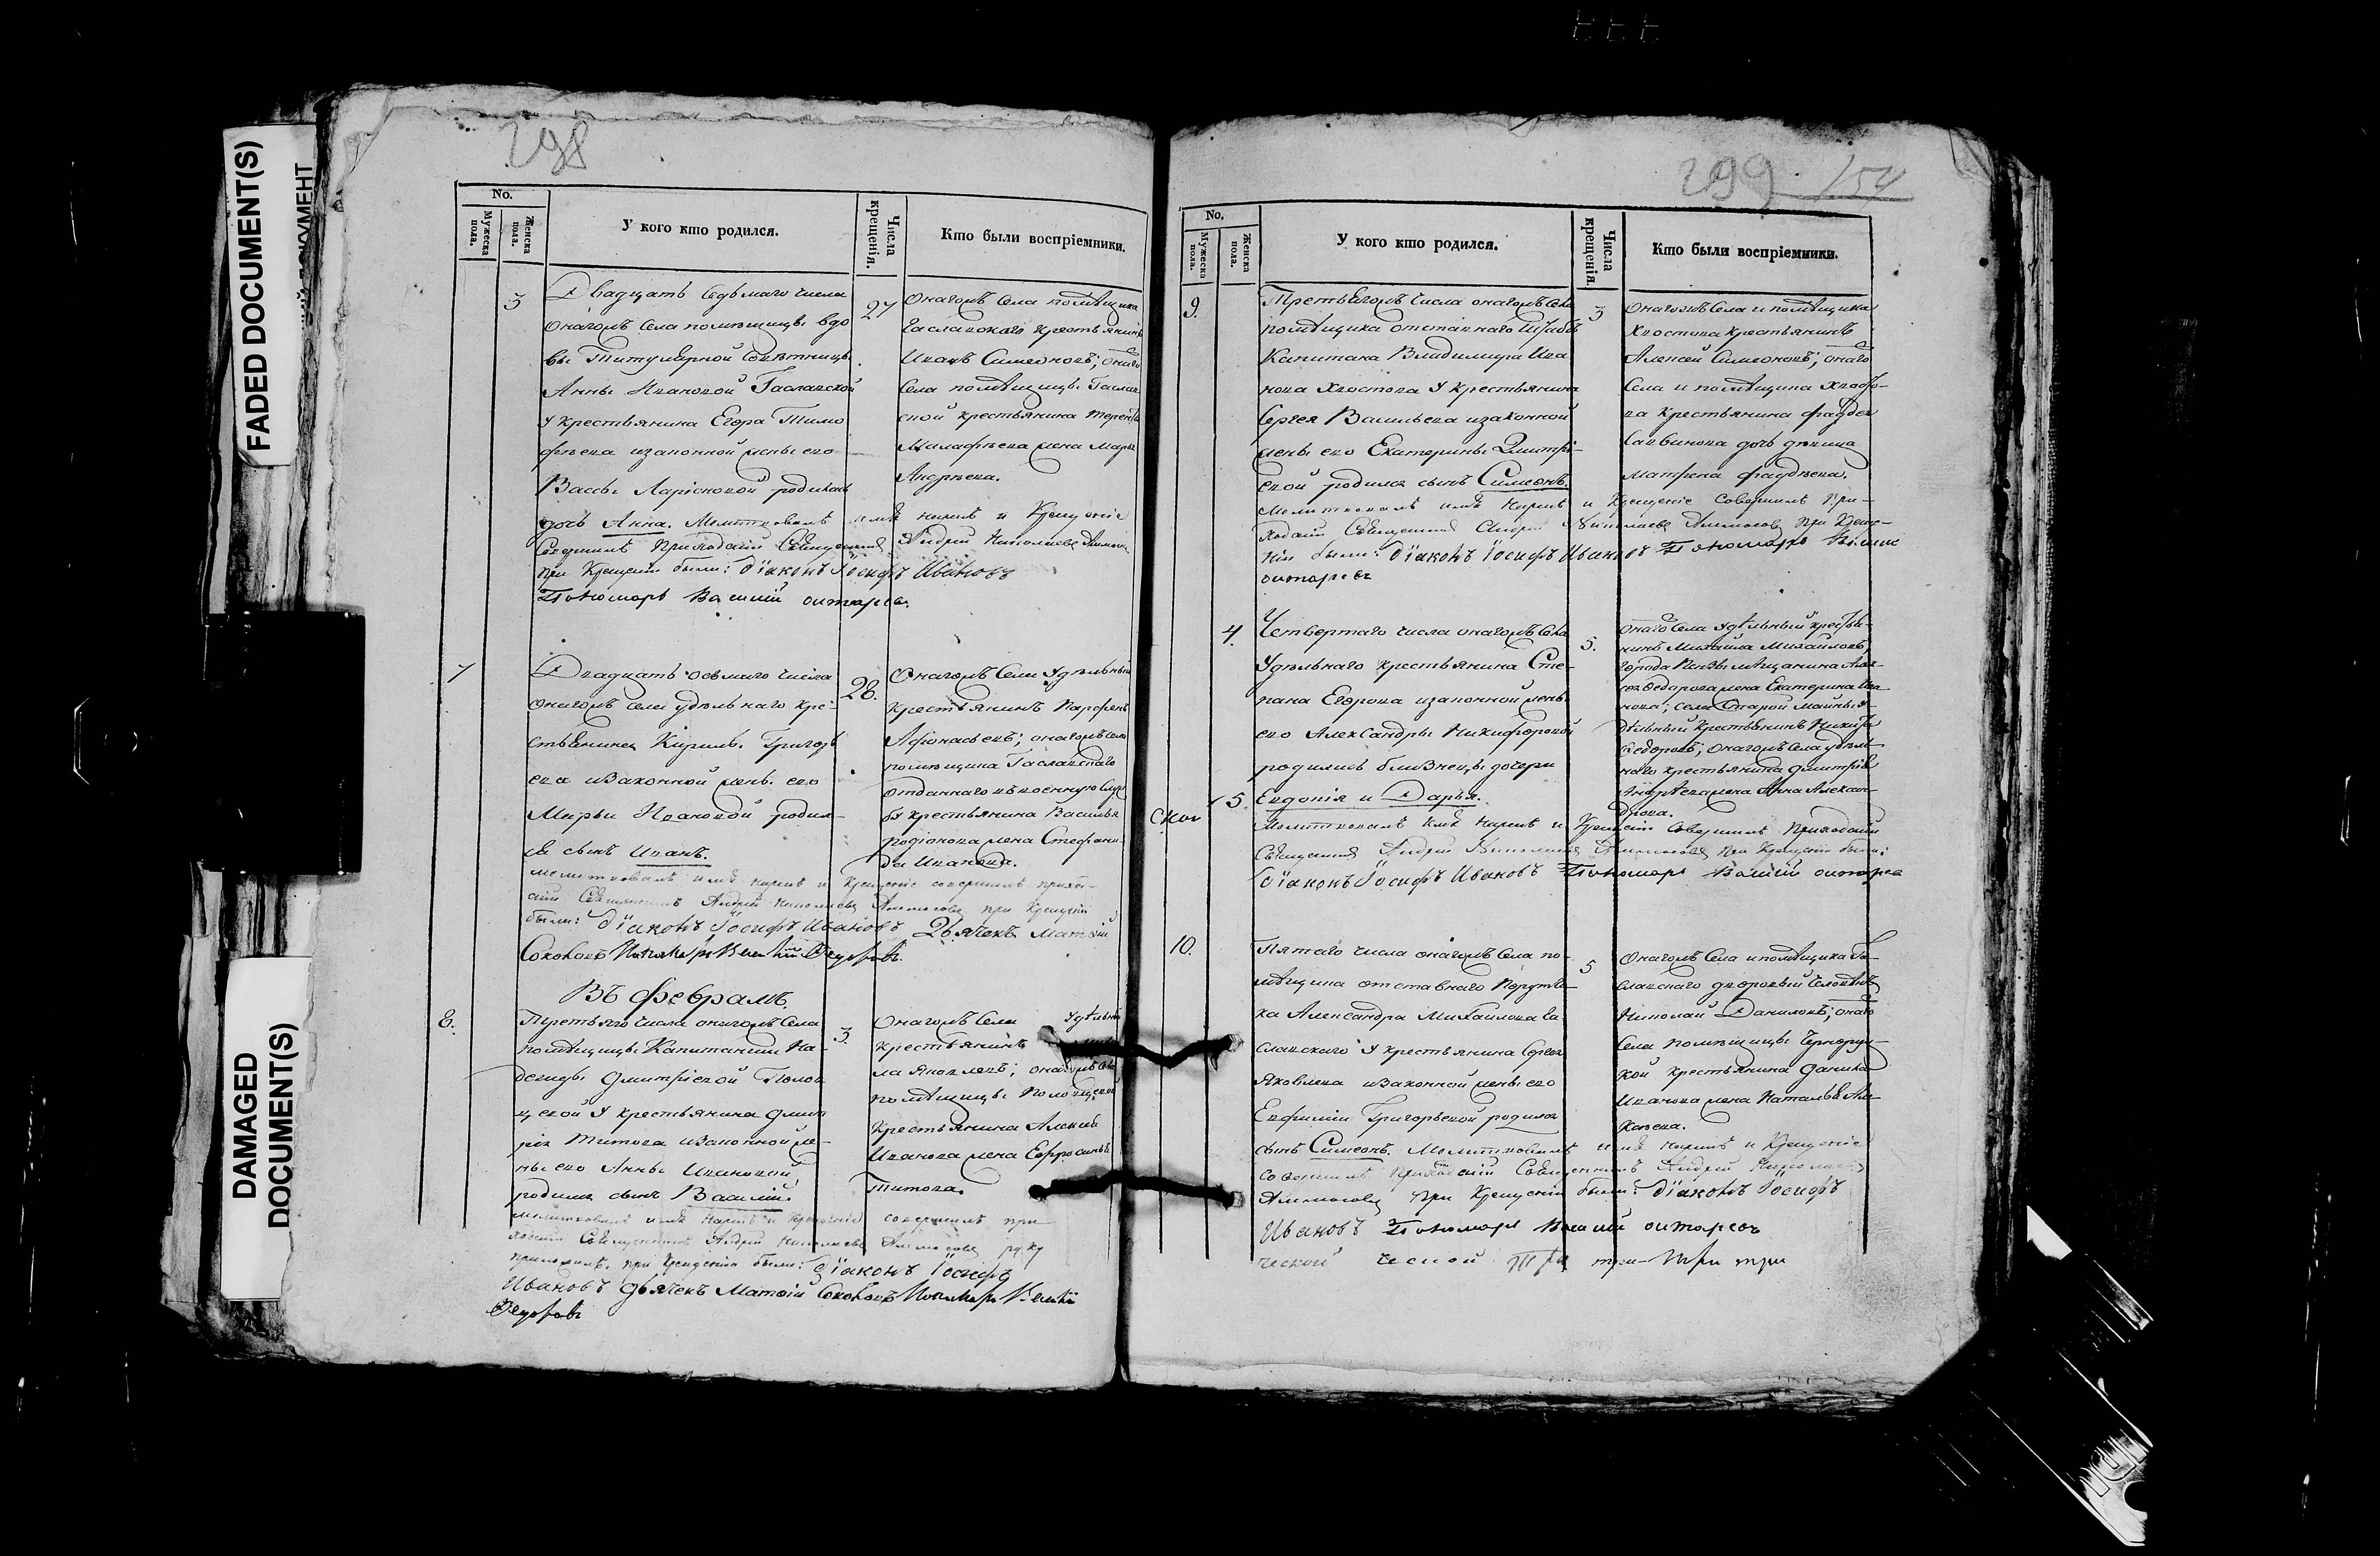 FADED DOCUMENT(S)
DAMAGED
DOCUMENT(S)
298
No.
Мужеска пола.
Женска пола.
У кого кто родился.
Числа крещенія.
Кто были воспріемники.
3
Двадцать седьмаго числа
онагомъ села помѣщицы вдо
вы Титулярной Совѣтницы
Анны Ивановой Гаславской
у крестьянина Егора Тимо
фѣева иззаконной жены его
Вассы Ларіоновой родилась
дочь Анна. Молитвовалъ имя нарекъ и Крещеніе
Совершилъ Приходскій Священникъ Андрей Николаевъ
при Крещеніи были: діаконъ Іосифъ Ивановъ
Пономарь Василій
27
Онагомъ Села помѣщика
Гаславского крестьянинъ
Иванъ Симеоновъ; онаго
Села помѣщицы Гаслав
ской крестьянина Терентья
жена Марья
Андрѣева.
7
Двадцать осьмаго числа
онагомъ селе удѣльнаго кре-
стьянина Кирилы Григорь
ева иззаконной жены его
Марьи Ивановой родил-
ся сынъ Иванъ.
молитвовалъ имя нарекъ и Крещеніе совершилъ приход-
скій Священникъ Андрей Николаевъ при Крещеніи
были: діаконъ Іосифъ Ивановъ Дьячекъ Матѳій
Соколовъ Пономарь Василій Ѳедоровъ
28.
Онагомъ Села Удѣльный
крестьянинъ Парфенъ
Афонасьевъ; онагомъ села
помѣщика Гаславскаго
отданнаго въ военную служ
бу крестьянина Василья
Родіонова жена Стефани
да Иванова.
Въ февралѣ
8.
Третьяго числа онагомъ Села
помѣщицы Капитанши На-
дежды Дмитріевой Полов
цовой У крестьянина Дмит
рія Титова иззаконной же-
ны его Анны Ивановой
родился сынъ Василій.
молитвовалъ имя нарекъ и Крещеніе совершилъ при-
ходскій Священникъ Андрей Николаевъ руку
приложилъ. при Крещеніи были: діаконъ Іосифъ
Ивановъ дьячекъ Матѳій Соколовъ Пономарь Василій
Ѳедоровъ
3.
Онагомъ Села Удѣльный
крестьянинъ
ла Яковлевъ; онагомъ села
помѣщицы
крестьянина Алексѣя
Иванова жена Ефросинья
Титова.
299
154
No.
Мужеска пола.
Женска пола.
У кого кто родился.
Числа крещенія.
Кто были воспріемники.
9.
Третьягомъ Числа онагомъ Села
помѣщика отставнаго Штабсъ
Капитана Владимира Ива
нова Хвостова У крестьянина
Сергея Васильева иззаконной
жены его Екатерины Дмитрі-
евой родился сынъ Симеонъ.
Молитвовалъ имя Нарекъ и Крещеніе Совершилъ При-
ходскій Священникъ Андрей Николаевъ при Креще-
ніи были: діаконъ Іосифъ Ивановъ Пономарь Василій
3
Онагомъ Села и помѣщика
Хвостова крестьянинъ
Алексей Симеоновъ; онаго
Села и помѣщика Хвосто-
ва крестьянина Фаддея
Саввинова дочь дѣвица
Матрена Фаддѣева.
4.
Четвертаго числа онагомъ Села
Удѣльнаго крестьянина Сте-
пана Егорова иззаконной жены
его Александры Никифоровой
родились близнецы дочери
5.
Евдокія и Дарья.
Молитвовалъ имя нарекъ и Крещеніе Совершилъ Приходскій
Священникъ Андрей Николаевъ при Крещеніи были:
діаконъ Іосифъ Ивановъ Пономарь Василій
5.
Онаго Села Удѣльный крестья-
нинъ Михаила Михайловъ,
города Пензы мѣщанина
Ѳедорова жена Екатерина Ива-
нова; села Старой Майны у-
дѣльный крестьянинъ Никита
Ѳедоровъ; онагомъ Села удѣль-
наго крестьянина Дмитрія
Андрѣева жена Анна Алексан-
дрова.
10.
Пятаго числа онагомъ Села по-
мѣщика отставнаго Поручи-
ка Александра Михайлова Га-
славскаго У крестьянина Сергея
Яковлева иззаконной жены его
Евфиміи Григорьевой родился
сынъ Симеонъ. Молитвовалъ имя нарекъ и Крещеніе
совершилъ Приходскій Священникъ Андрей Николаевъ
при Крещеніи были: діаконъ Іосифъ
Ивановъ Пономарь Василій
три три три
5
Онагомъ Села и помѣщика Га-
славскаго дворовый Человѣкъ
Николай Даниловъ; онаго
Села помѣщицы
кой крестьянина Данила
Иванова жена Наталья